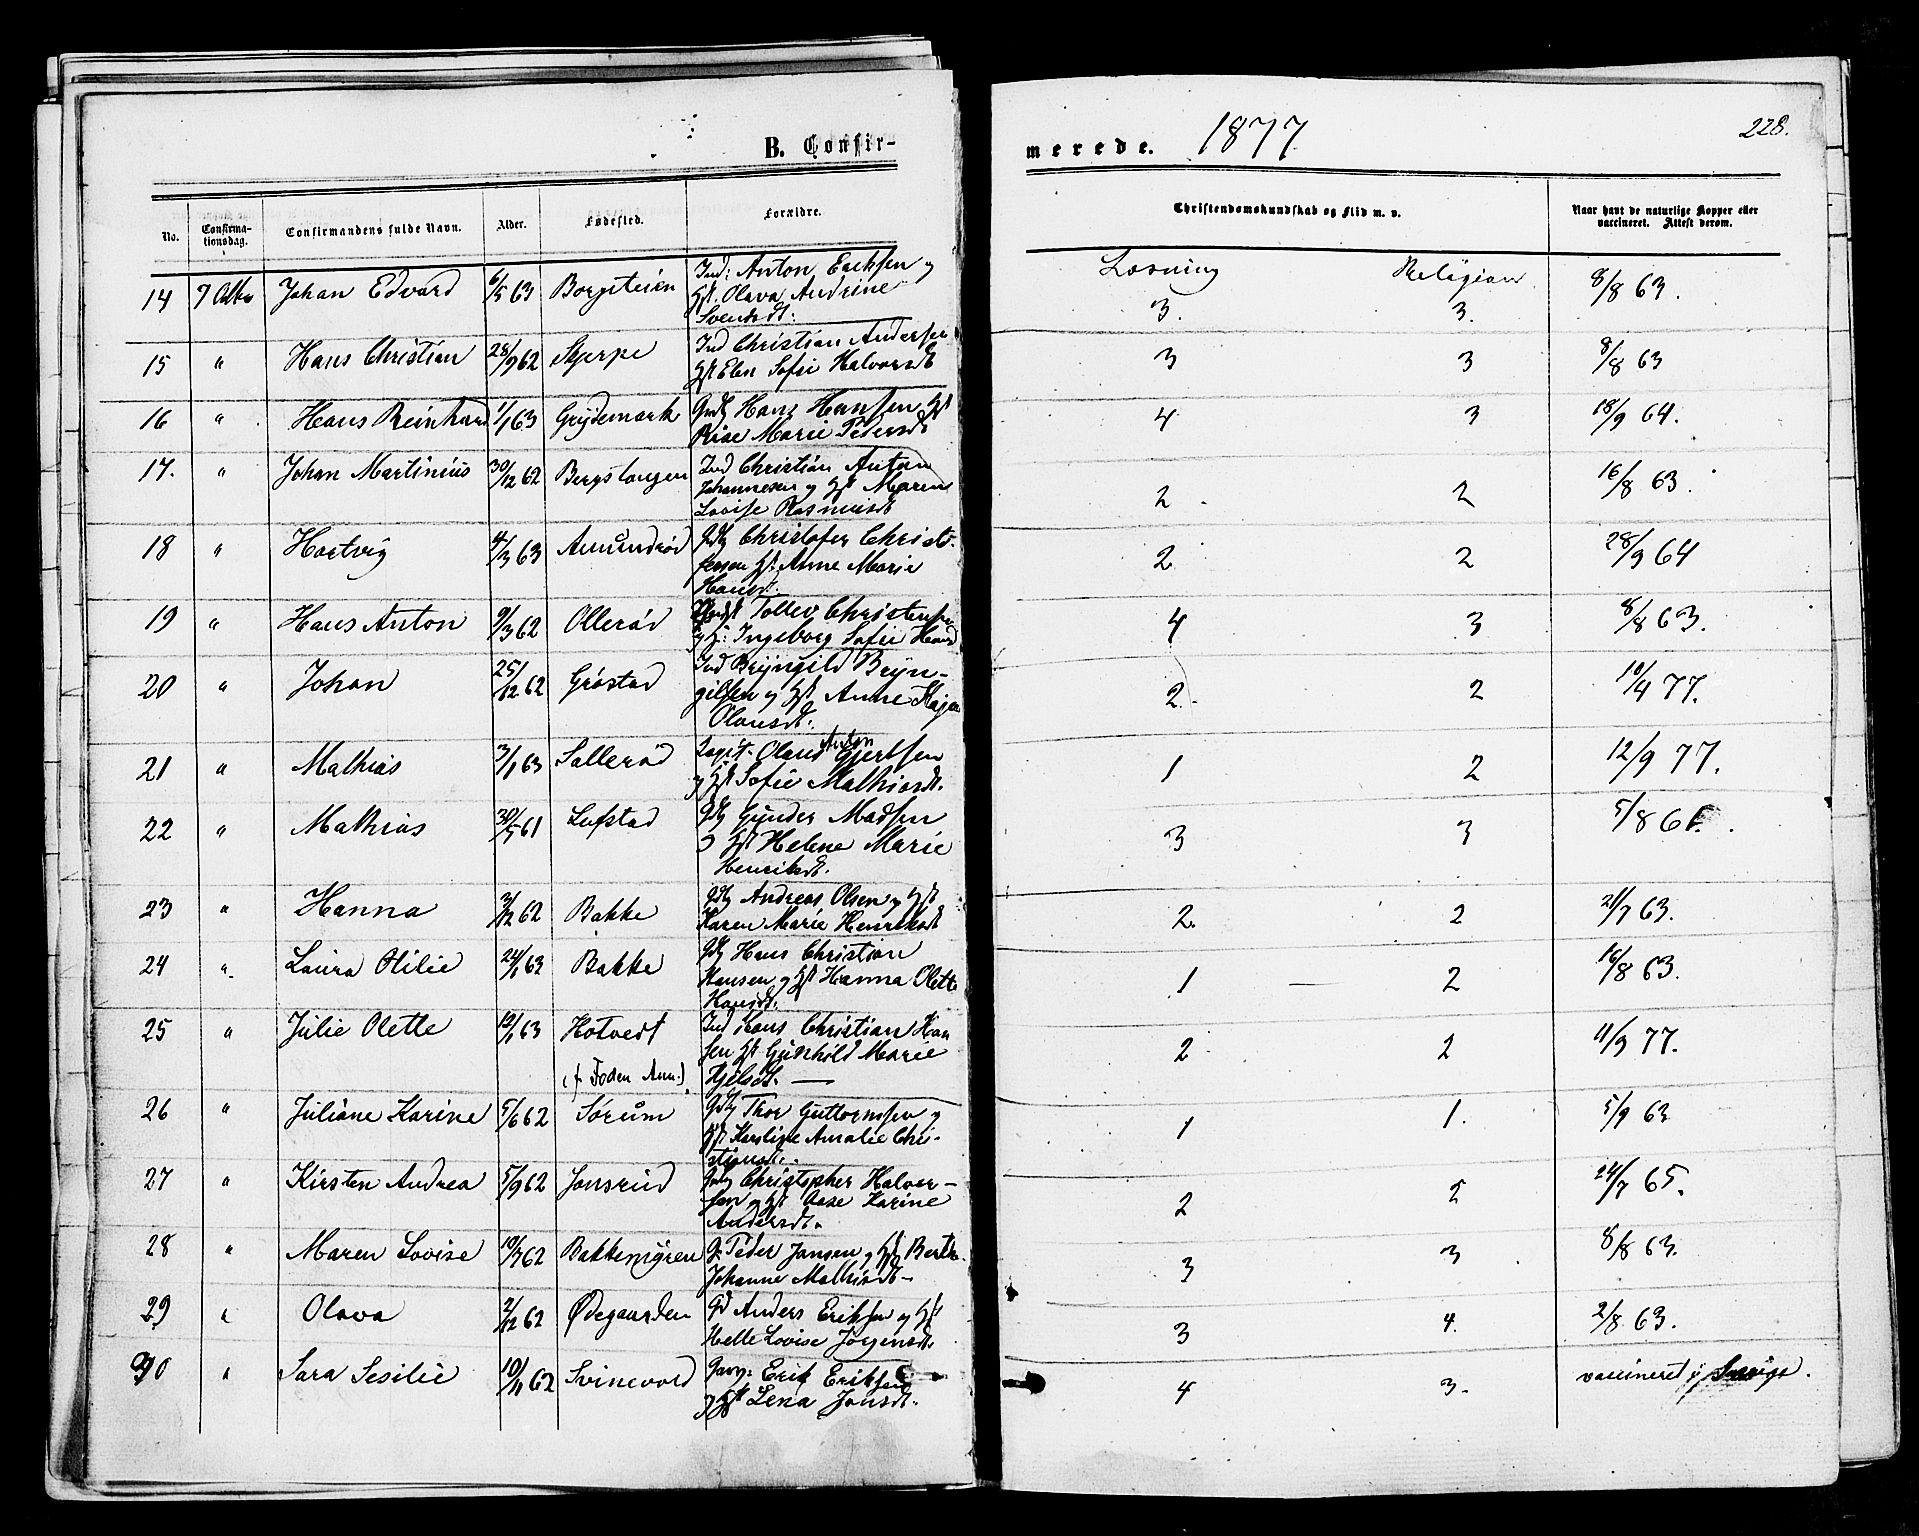 B. Confir-
merede. 1877
228.
No.
Confirma-
tionsdag.
Confirmandens fulde Navn.
Alder.
Fødested.
Forældre.
Christendomskundskab og Flid m. v.
Naar havt de naturlige Kopper eller
vaccineret. Attest derom.
Læsning Religion
14 7 Johan Edvard 6/5 63 Borgsteien Ind: Anton Eriksen og
Hst. Olava Andrine
Svendsdt: 3. 3. 8/8 63.
15 " Hans Christian 28/9 62 Skjerpe Ind Christian Andersen
Hst Elen Sofie Halvorsdt 3 3 8/8 63
16 " Hans Reinhard 1/1 63 Grydemark Gdbr Hans Hansen Hst
Marie Pedersdt 4 3 18/9 64.
17. " Johan Martinius 30/12 62 Ind Christian Anton
Johannesen og Hst Maren
Lovise Rasmusdt 2 2 16/8 63.
18 " Hartvig 4/3 63 Amundrød Gdb Christofer Christof-
fersen Hst. Anne Marie
Hansd. 2. 2 28/9 64
19 " Hans Anton 9/3 62 Ollerød Tollev Christensen
og H: Ingeborg Sofie Hansd 4 3 8/8 63.
20 " Johan 25/12 62 Gröstad Ind Bryngild Bryn-
gilsen og Hst Anne Kaja
Olausdt. 2. 2 10/4 77.
21 " Mathias 3/1 63 Sollerød Olaus Anton Gjertsen
og Hst Sofie Mathiasdt. 1 2 12/9 77.
22 " Mathias 30/5 61 Lofstad Gdb Gunder Madsen
og Hst Helene Marie
Henriksdt. 3 3 5/8 61.
23 " Hanna 3/12 62 Bakke Gdb Andreas Olsen og Hst
Karen Marie Henriksdt 2. 2 21/7 63.
24 " Laura Otilie 24/1 63 Bakke Gdb Hans Christian
Hansen og Hst Hanna Olette
Hansdt. 1 2 16/8 63.
25 " Julie Olette 12/1 63 Hotvedt Ind Hans Christian Han
sen Hst Gunhild Marie
Kjelsdt. 2 2 11/9 77.
26 " Juliane Karine 5/6 62 Sørum Gdb Thor Guttormsen og
Hst Karoline Amalie Chri-
stiansdt. 1 1. 5/9 63
27 " Kirsten Andrea 5/9 62 Jonsrud Gdb Christopher Halvor-
sen og Hst Aase Karine
Andersdt. 2 2 24/7 65.
28 " Maren Lovise 10/7 62 Bakkemyren G. Peder Jansen og Hst Berthe
Johanne Mathiasdt- 3 3 8/8 63.
29 " Olava 2/12 62 Ødegaarden Gd Anders Eriksen og Hst
Helle Lovise Jørgensdt. 3 4. 2/8 63.
30 " Sara Sesilie 10/11 62 Svinevold Erik Eriksen
og Hst Lena Jonsdt. 4 3. vaccineret i Sverige.